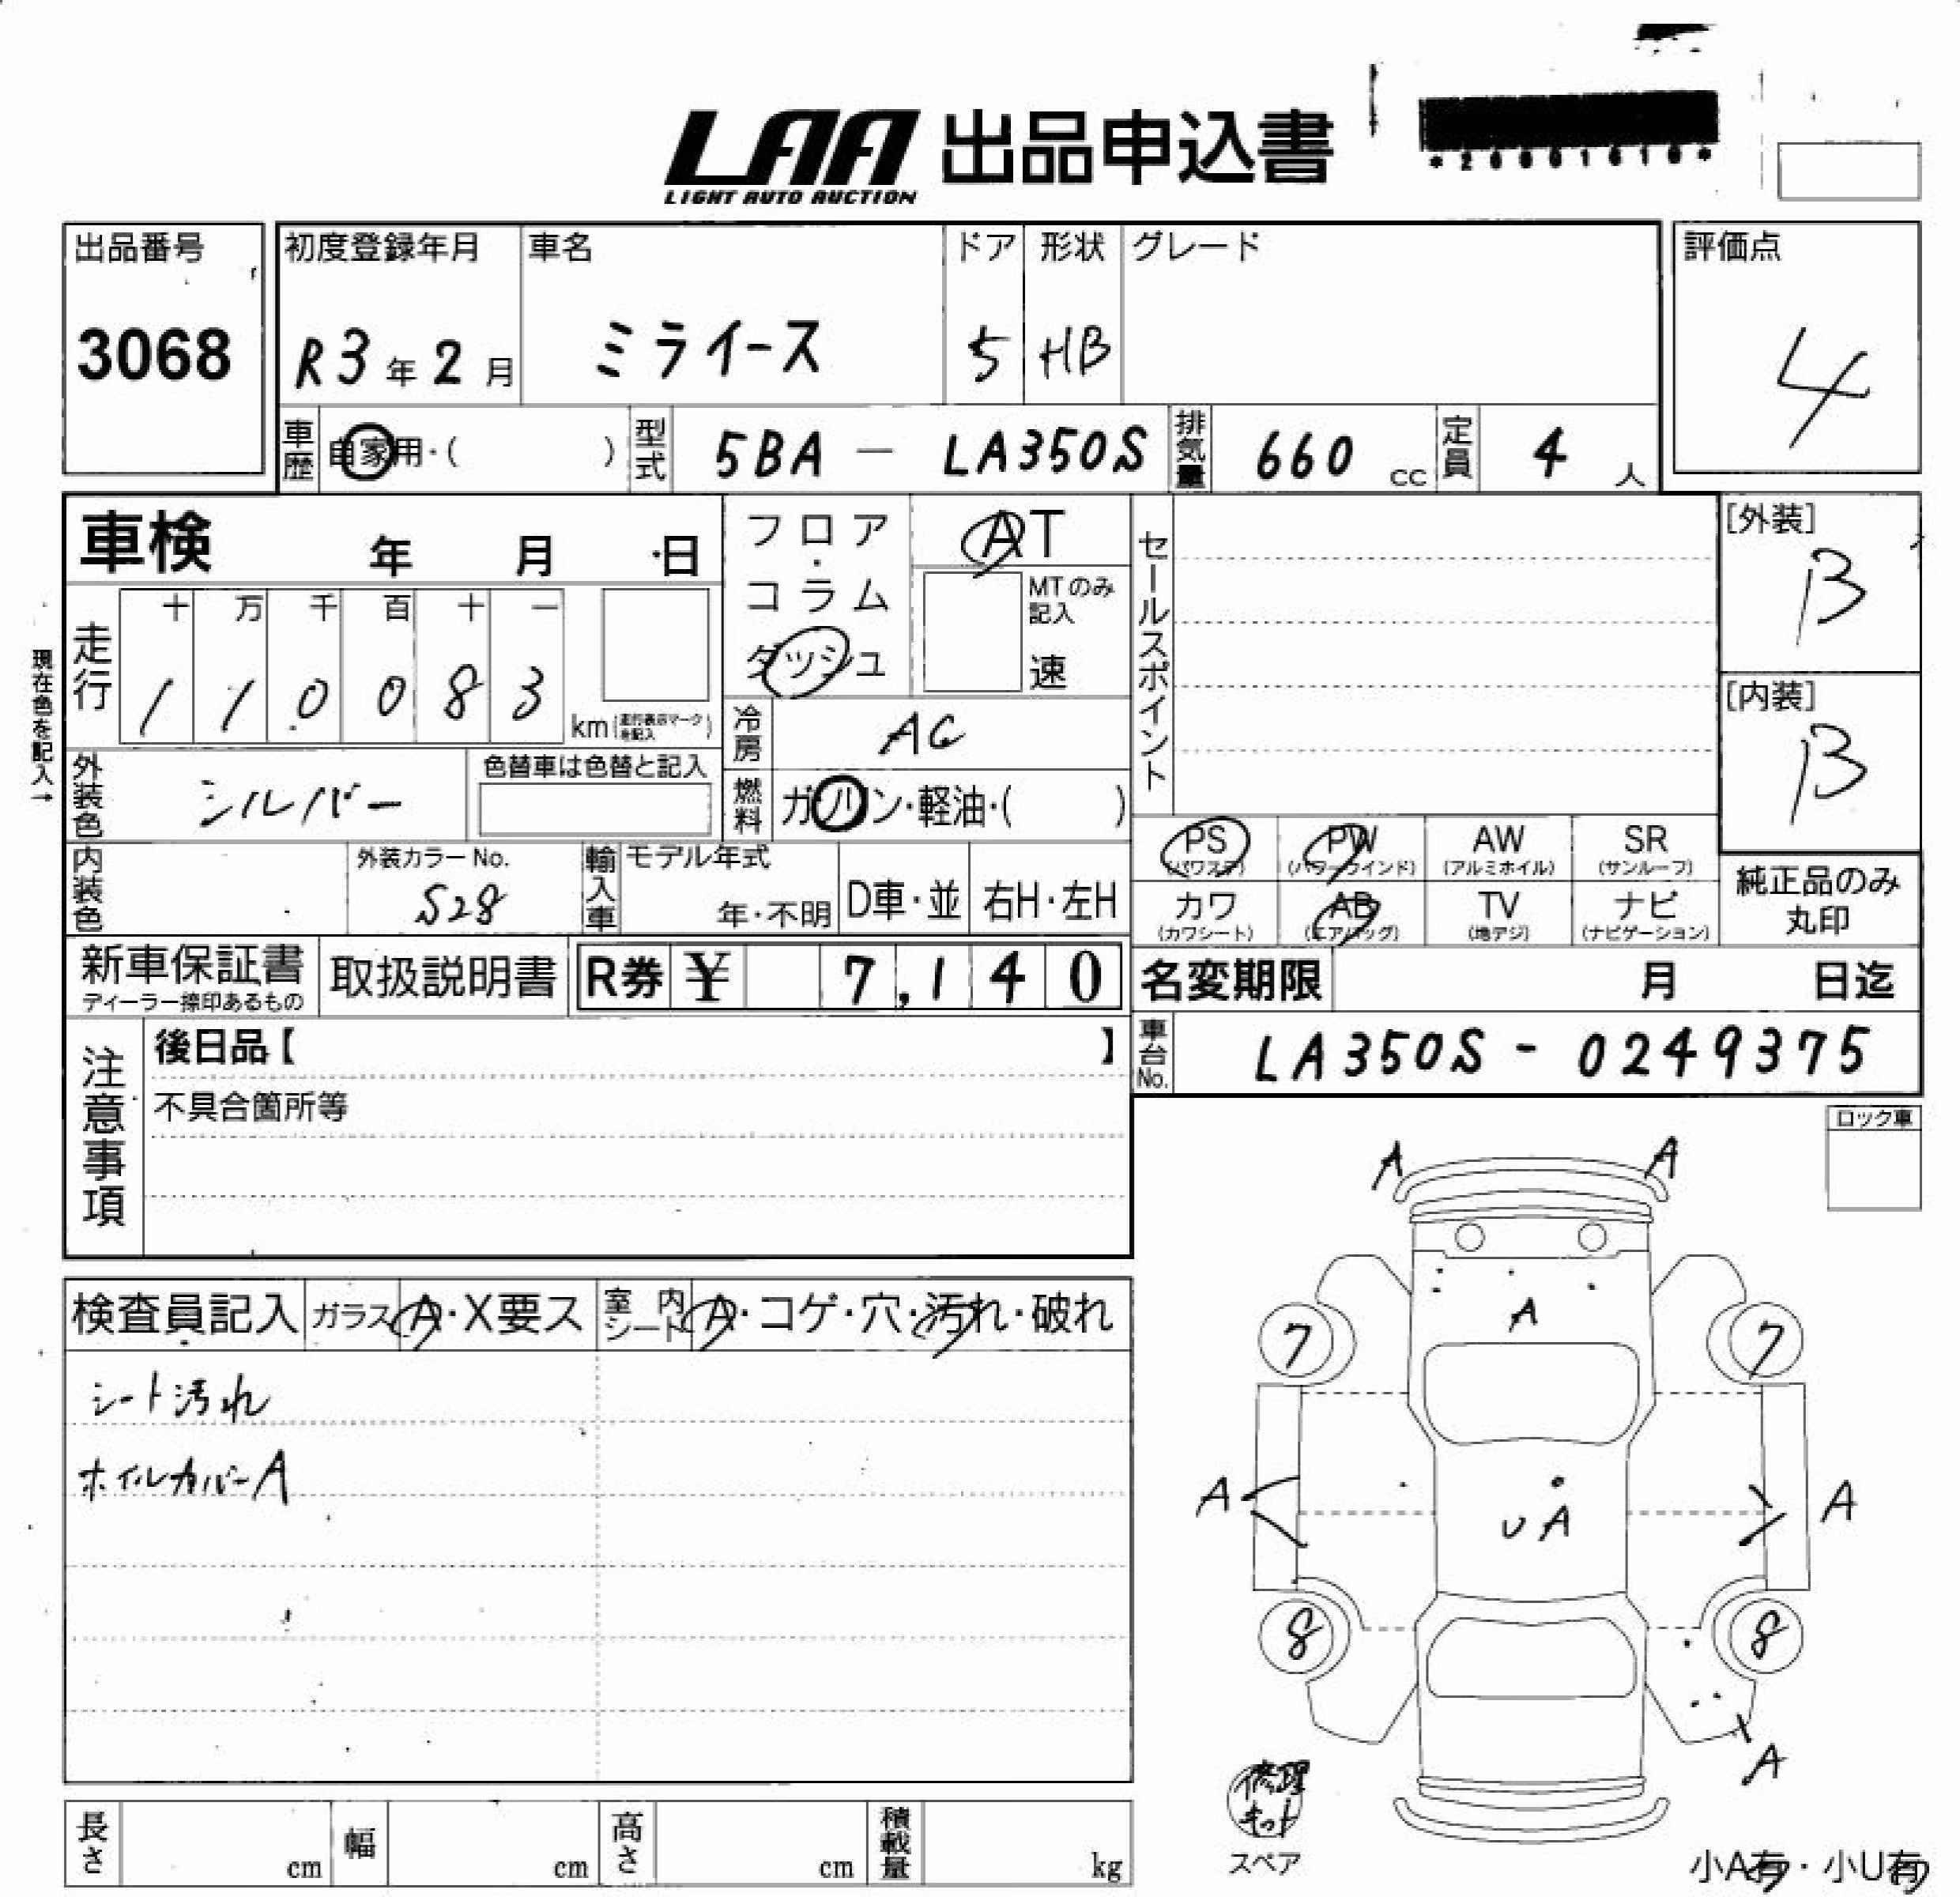 LAA 出品申込書
LIGHT AUTO AUCTION
出品番号
3068
初度登録年月
R3年2月
車名
ミライース
ドア
5
形状
HB
グレード
評価点
4
車歴
自家用・( )
型式
5BA － LA350S
排気量
660 cc
定員
4 人
車検 年 月 日
フロア・コラム
ダッシュ
AT
MTのみ記入
速
セールスポイント
[外装]
B
[内装]
B
現在色を記入→
走行
十 万 千 百 十 一
1 1 0 0 8 3
km (走行表示マークを記入)
冷房
AC
燃料
ガソリン・軽油・( )
外装色
シルバー
色替車は色替と記入
内装色
外装カラーNo.
S28
輸入車
モデル年式
年・不明
D車・並
右H・左H
PS (パワステ)
PW (パワーウインド)
AW (アルミホイル)
SR (サンルーフ)
カワ (カワシート)
AB (エアバッグ)
TV (地デジ)
ナビ (ナビゲーション)
純正品のみ丸印
新車保証書
ディーラー捺印あるもの
取扱説明書
R券 ¥ 7,140
名変期限 月 日迄
注意事項
後日品【 】
不具合箇所等
車台No.
LA350S - 0249375
ロック車
検査員記入
ガラス
A・X要ス
室内シート
A・コゲ・穴・汚れ・破れ
シート汚れ
ホイルカバーA
A A
A
7 7
A A
U A
8 8
A
修理キット
スペア
小A有・小U有
長さ cm
幅 cm
高さ cm
積載量 kg